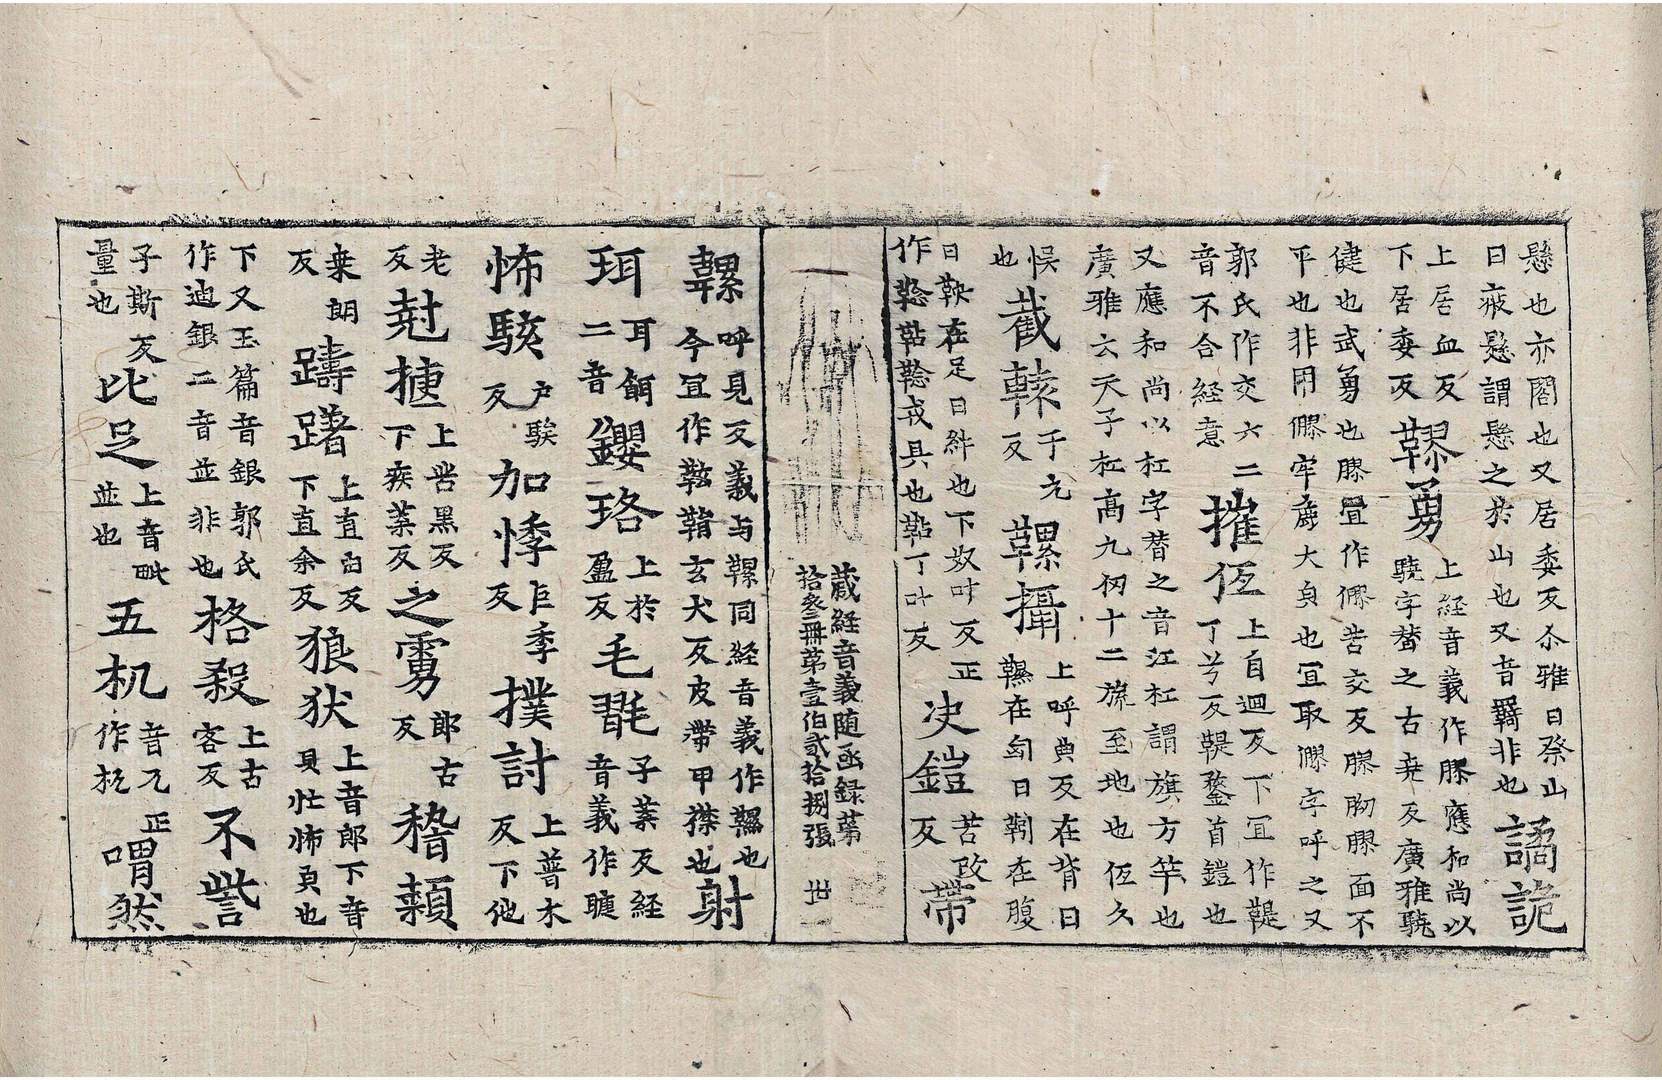 懸也亦閣也又居委反尒雅曰祭山
曰庪懸謂懸之於山也又音羇非也譎詭
上居血反
下居委反䩭勇上経音義作膠應和尚以
驍字替之古堯反廣雅驍
健也武勇也膠冝作㺒苦交反膠㓛膠面不
平也非用㺒牢麁大皃也冝取㺒字呼之又
郭氏作交六二
音不合経意摧伍上自迴反下冝作鞮
丁兮反鞮鍪首鎧也
又應和尚以杠字替之音江杠謂旗方竿也
廣雅云天子杠高九仞十二旒至地也伍久
悞
也截䩮于元
反䩷攝上呼典反在背曰
韅在匈曰靷在腹
曰鞅在足曰絆也下奴叶反正
作鞊鞍具也鞊丁叶反決鎧苦改
反带
蔵経音義随函録第
拾叄冊第壹伯貳拾捌張 丗
䩷呼見反義与䩷同経音義作韅也
今冝作鞍鞘玄犬反皮帶甲襻也射
珥耳餌
二音瓔珞上於
盈反毛毦子葉反経
音義作睫
怖駭户騃
反加悸巨季
反撲討上普木
反下他
老
反尅捷上苦黒反
下疾葉反之勇郎古
反稽顙
桒朗
反躊躇上直由反
下直余反狼狀上音郎下音
㒵忙怖皃也
下又玉篇音銀郭氏
作迪銀二音並非也格殺上古
客反不訾
子斯反
量也比足上音毗
並也五杌音兀正
作杌喟然